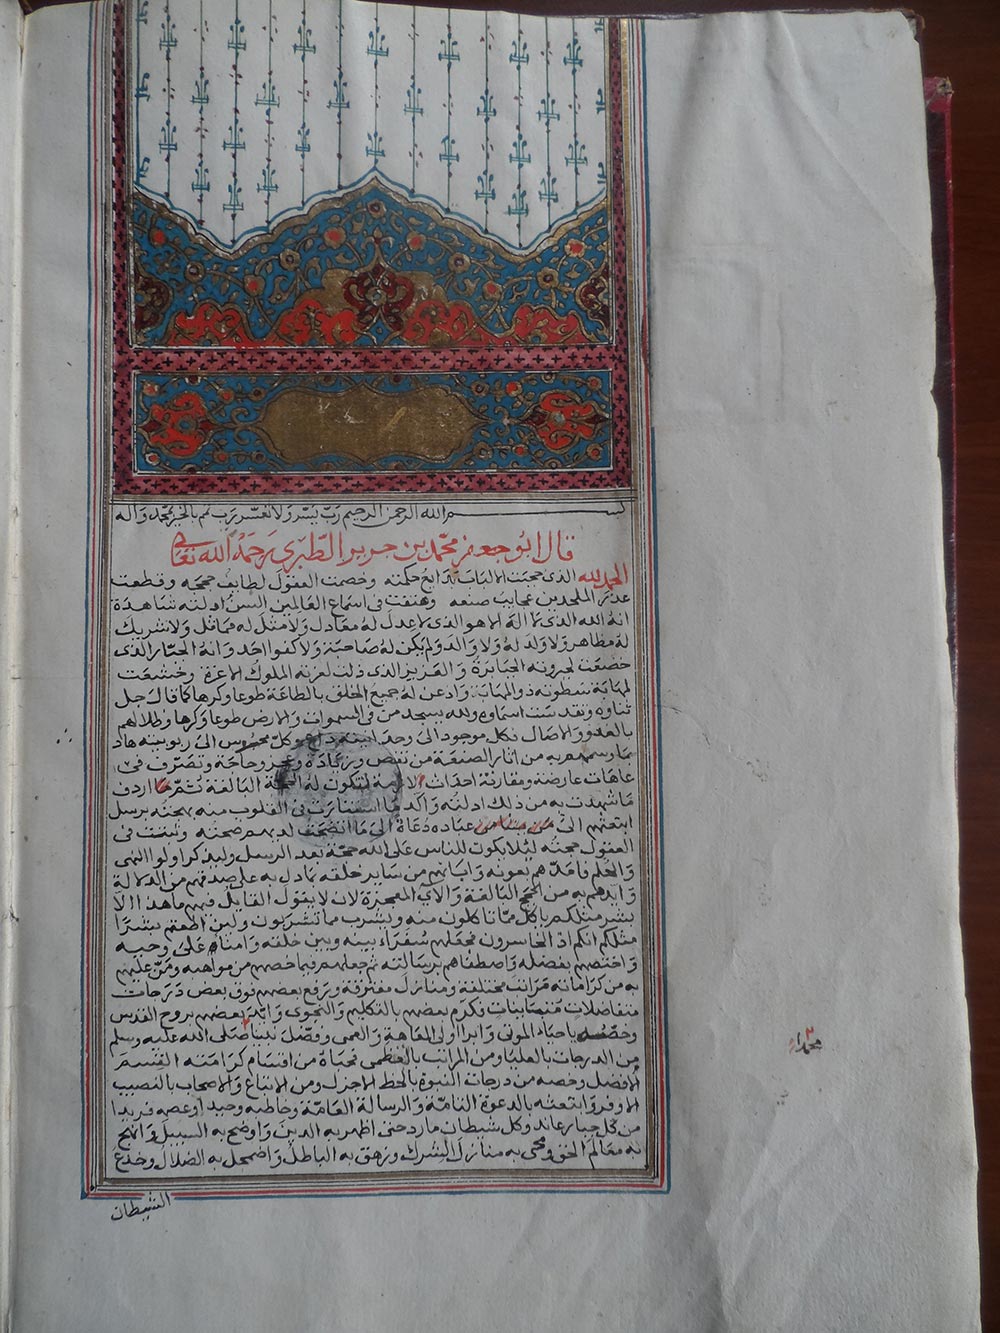 بسم الله الرحمن الرحيم رب يسر ولا تعسر رب تمم بالخير محمد واله
قال ابو جعفر محمد بن جرير الطبري رحمه الله تعالى
الحمد لله الذي حجبت الالباب بدايع حكمته وخصمت العقول لطايف حججه وقطعت
عذر الملحدين عجايب صنعه وهتفت في اسماع العالمين السن ادلته شاهدة
انه الله الذي لا اله الا هو الذي لا عدل له معادل ولا مثل له مماثل ولا شريك
له مظاهر ولا ولد له ولا والد ولم يكن له صاحبة ولا كفوا احد وانه الجبار الذي
خضعت لجبروته الجبابرة والعزيز الذي ذلت لعزته الملوك الاعزة وخشعت
لمهابة سطوته ذوالمهابة واذعن له جميع الخلق بالطاعة طوعا وكرها كما قال جل
ثناوه وتقدست اسماوه ولله يسجد من في السموات والارض طوعا وكرها وظلالهم
بالغدو والاصال فكل موجود الى وحدانيته داع وكل محسوس الى ربوبيته هاد
بما وسمهم به من اثار الصنعة من نقص وزيادة وعجز وحاجة وتصرف في
عاهات عارضة ومقارنة احداث لازمة لتكون له الحجة البالغة ثم ما اردف
ما شهدت به من ذلك ادلته واكد ما استنارت في القلوب منه بهجته برسل
ابتعثهم الى من يشا من عباده دعاة الى ما اتضحت لديهم صحته وثبتت في
العقول حجته ليلا يكون للناس على الله حجة بعد الرسل وليذكر اولوا النهى
والحلم فامدهم بعونه وابانهم من ساير خلقه بما دل به على صدقهم من الدلالة
وايدهم به من الحجج البالغة والآي المعجزة لان لا يقول القايل فيهم ما هذا الا
بشر مثلكم ياكل مما تاكلون منه ويشرب مما تشربون ولين اطعتم بشرا
مثلكم انكم اذا لخاسرون فجعلهم سفراء بينه وبين خلقه وامناه على وحيه
واختصهم بفضله واصطفاهم برسالته ثم جعلهم فيما خصهم من مواهبه ومن عليهم
به من كراماته مراتب مختلفة ومنازل مفترقة ورفع بعضهم فوق بعض درجات
متفاضلات متباينات فكرم بعضهم بالتكليم والنجوى وايد بعضهم بروح القدس
وخصه باحياء الموتى وابرا اولي العاهة والعمى وفضل نبينا صلى الله عليه وسلم
من الدرجات بالعليا ومن المراتب بالعظمى فحباه من اقسام كرامته القسم
الافضل وخصه من درجات النبوة بالحظ الاجزل ومن الاتباع والاصحاب بالنصيب
الاوفر وابتعثه بالدعوة التامة والرسالة العامة وحاطه وحيدا وعصمه فريدا
من كل جبار عاند وكل شيطان مارد حتى اظهر به الدين واوضح به السبيل وانهج
به معالم الحق ومحى به منازل الشرك وزهق به الباطل واضمحل به الضلال وخدع
الشيطان